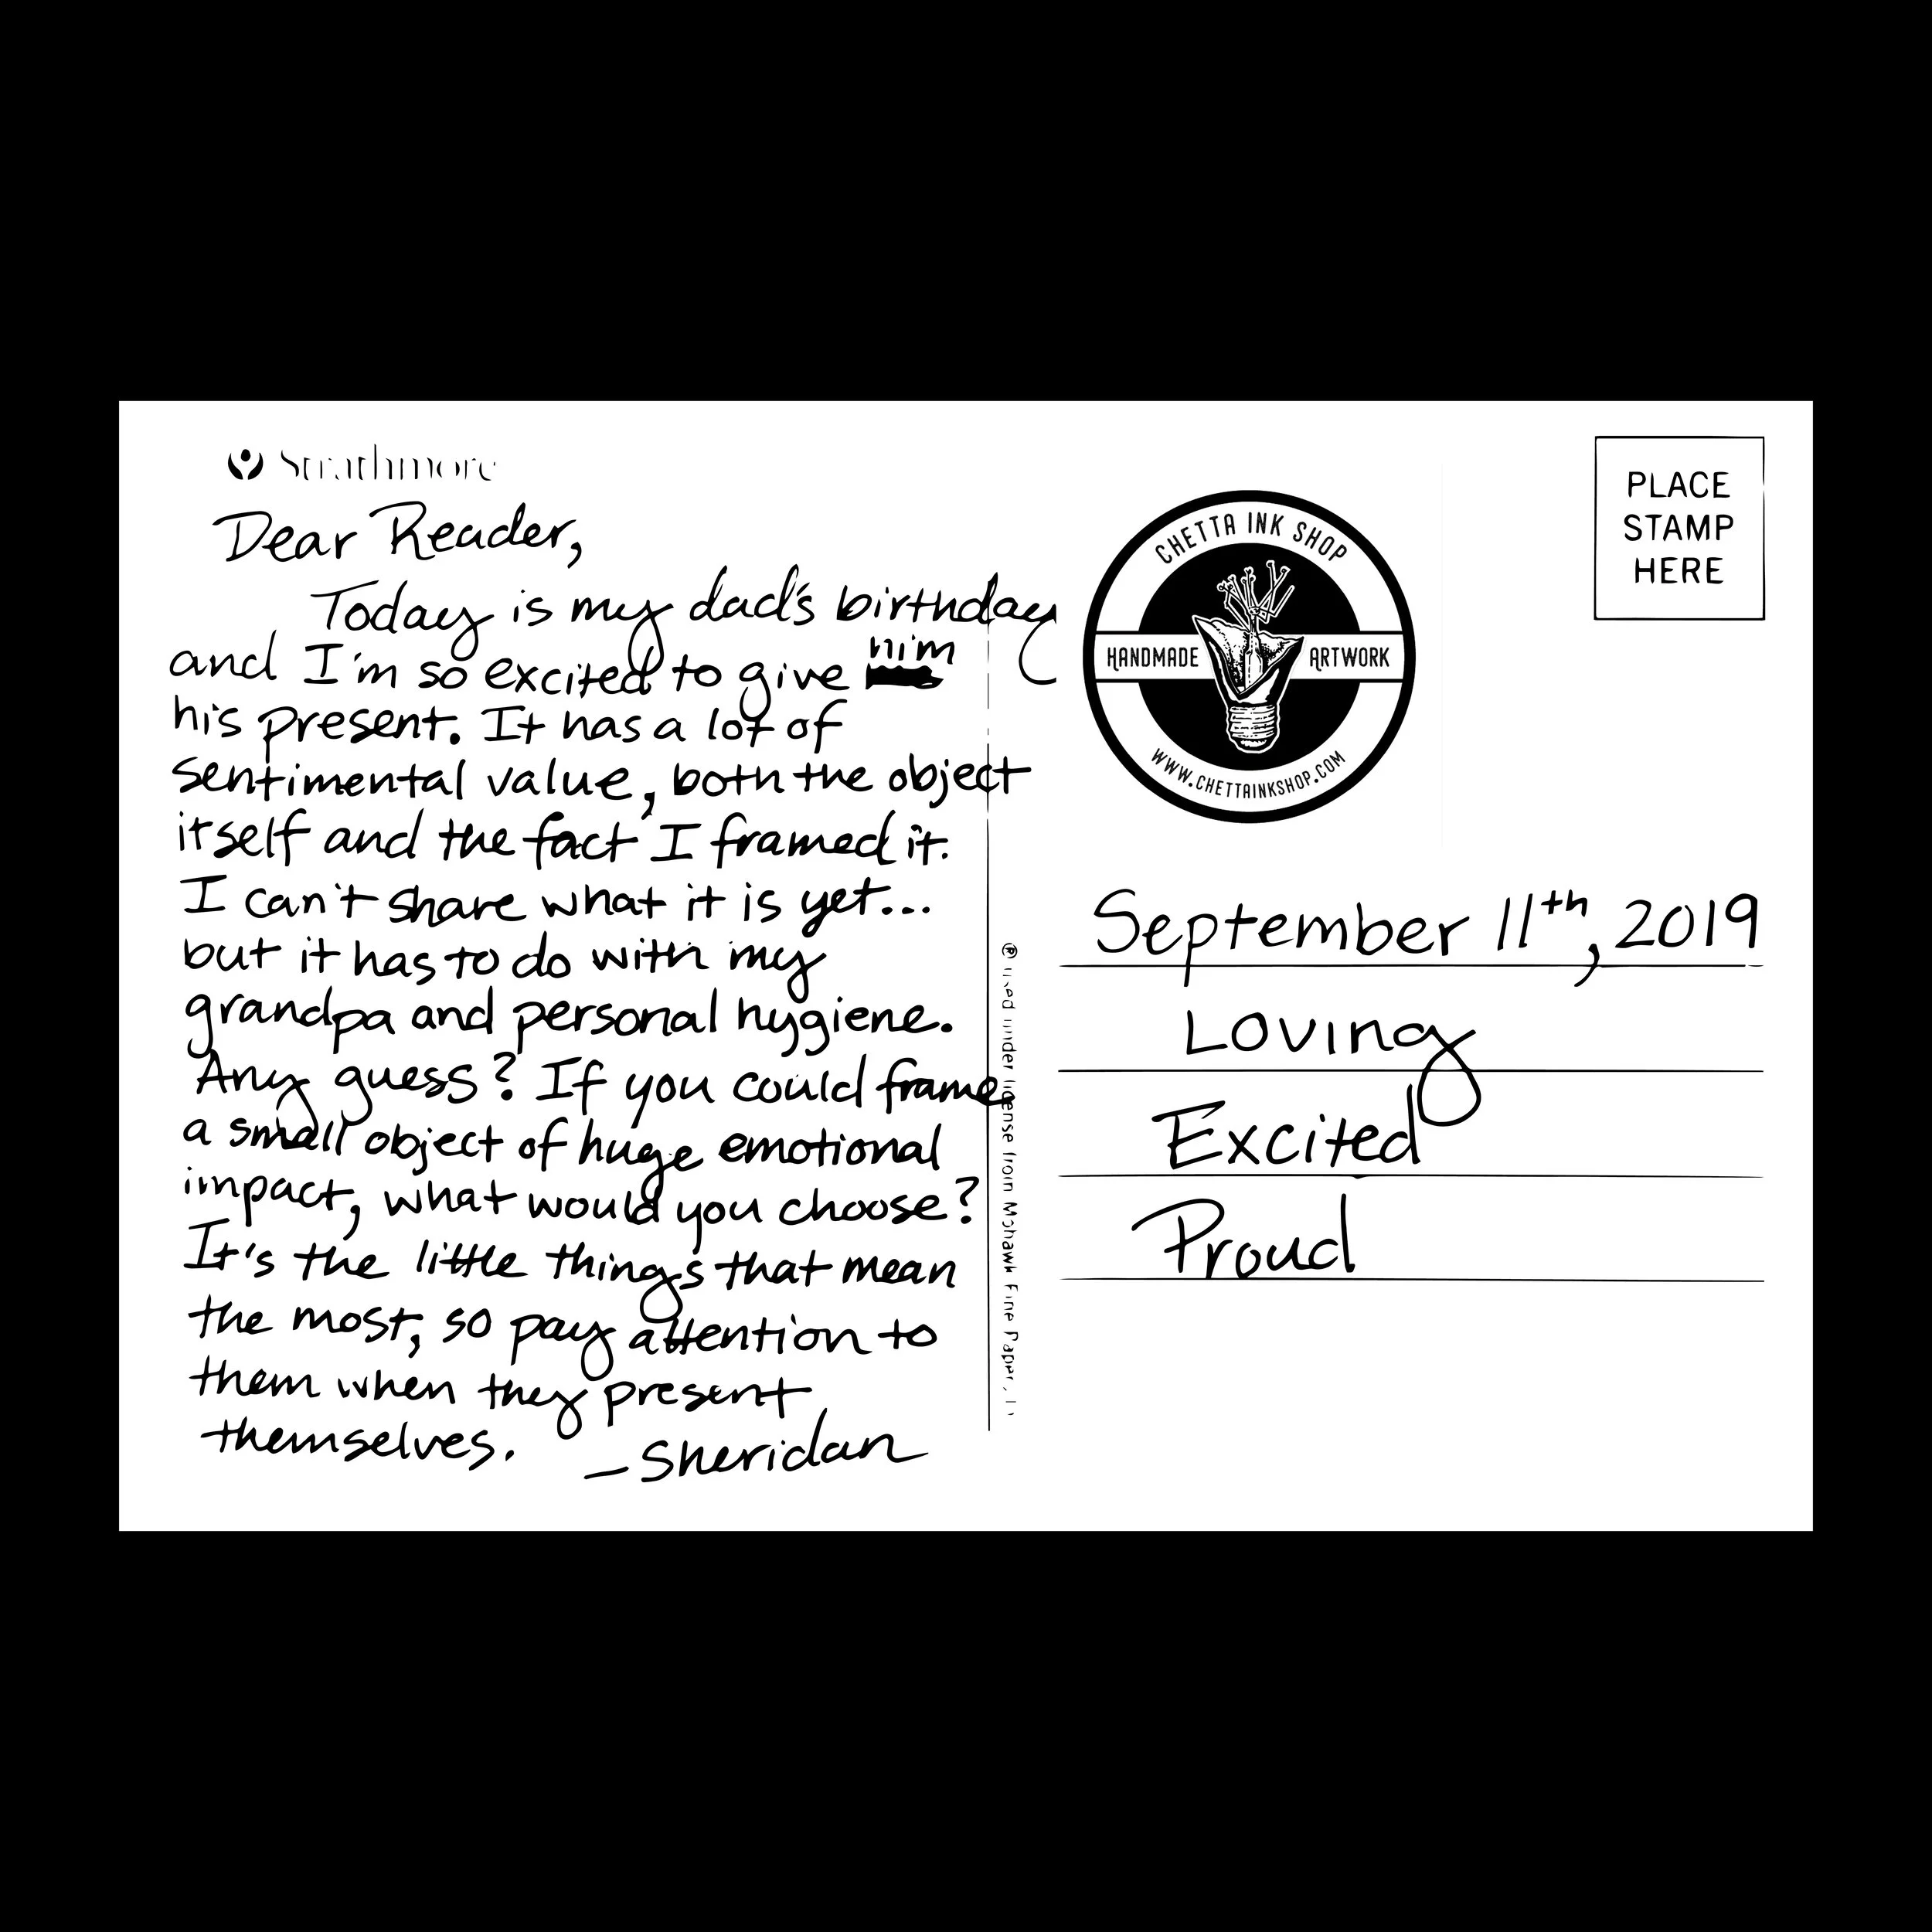 Strathmore
Dear Reader,
Today is my dad's birthday
and I'm so excited to give him
his present. It has a lot of
sentimental value, both the object
itself and the fact I framed it.
I can't share what it is yet...
but it has to do with my
grandpa and personal hygiene.
Any guess? If you could frame
a small object of huge emotional
impact, what would you choose?
It's the little things that mean
the most, so pay attention to
them when they present
themselves.
—Sheridan
® used under license from Mohawk Fine Paper, I
CHETTA INK SHOP
HANDMADE ARTWORK
WWW.CHETTAINKSHOP.COM
PLACE
STAMP
HERE
September 11th, 2019
Loving
Excited
Proud